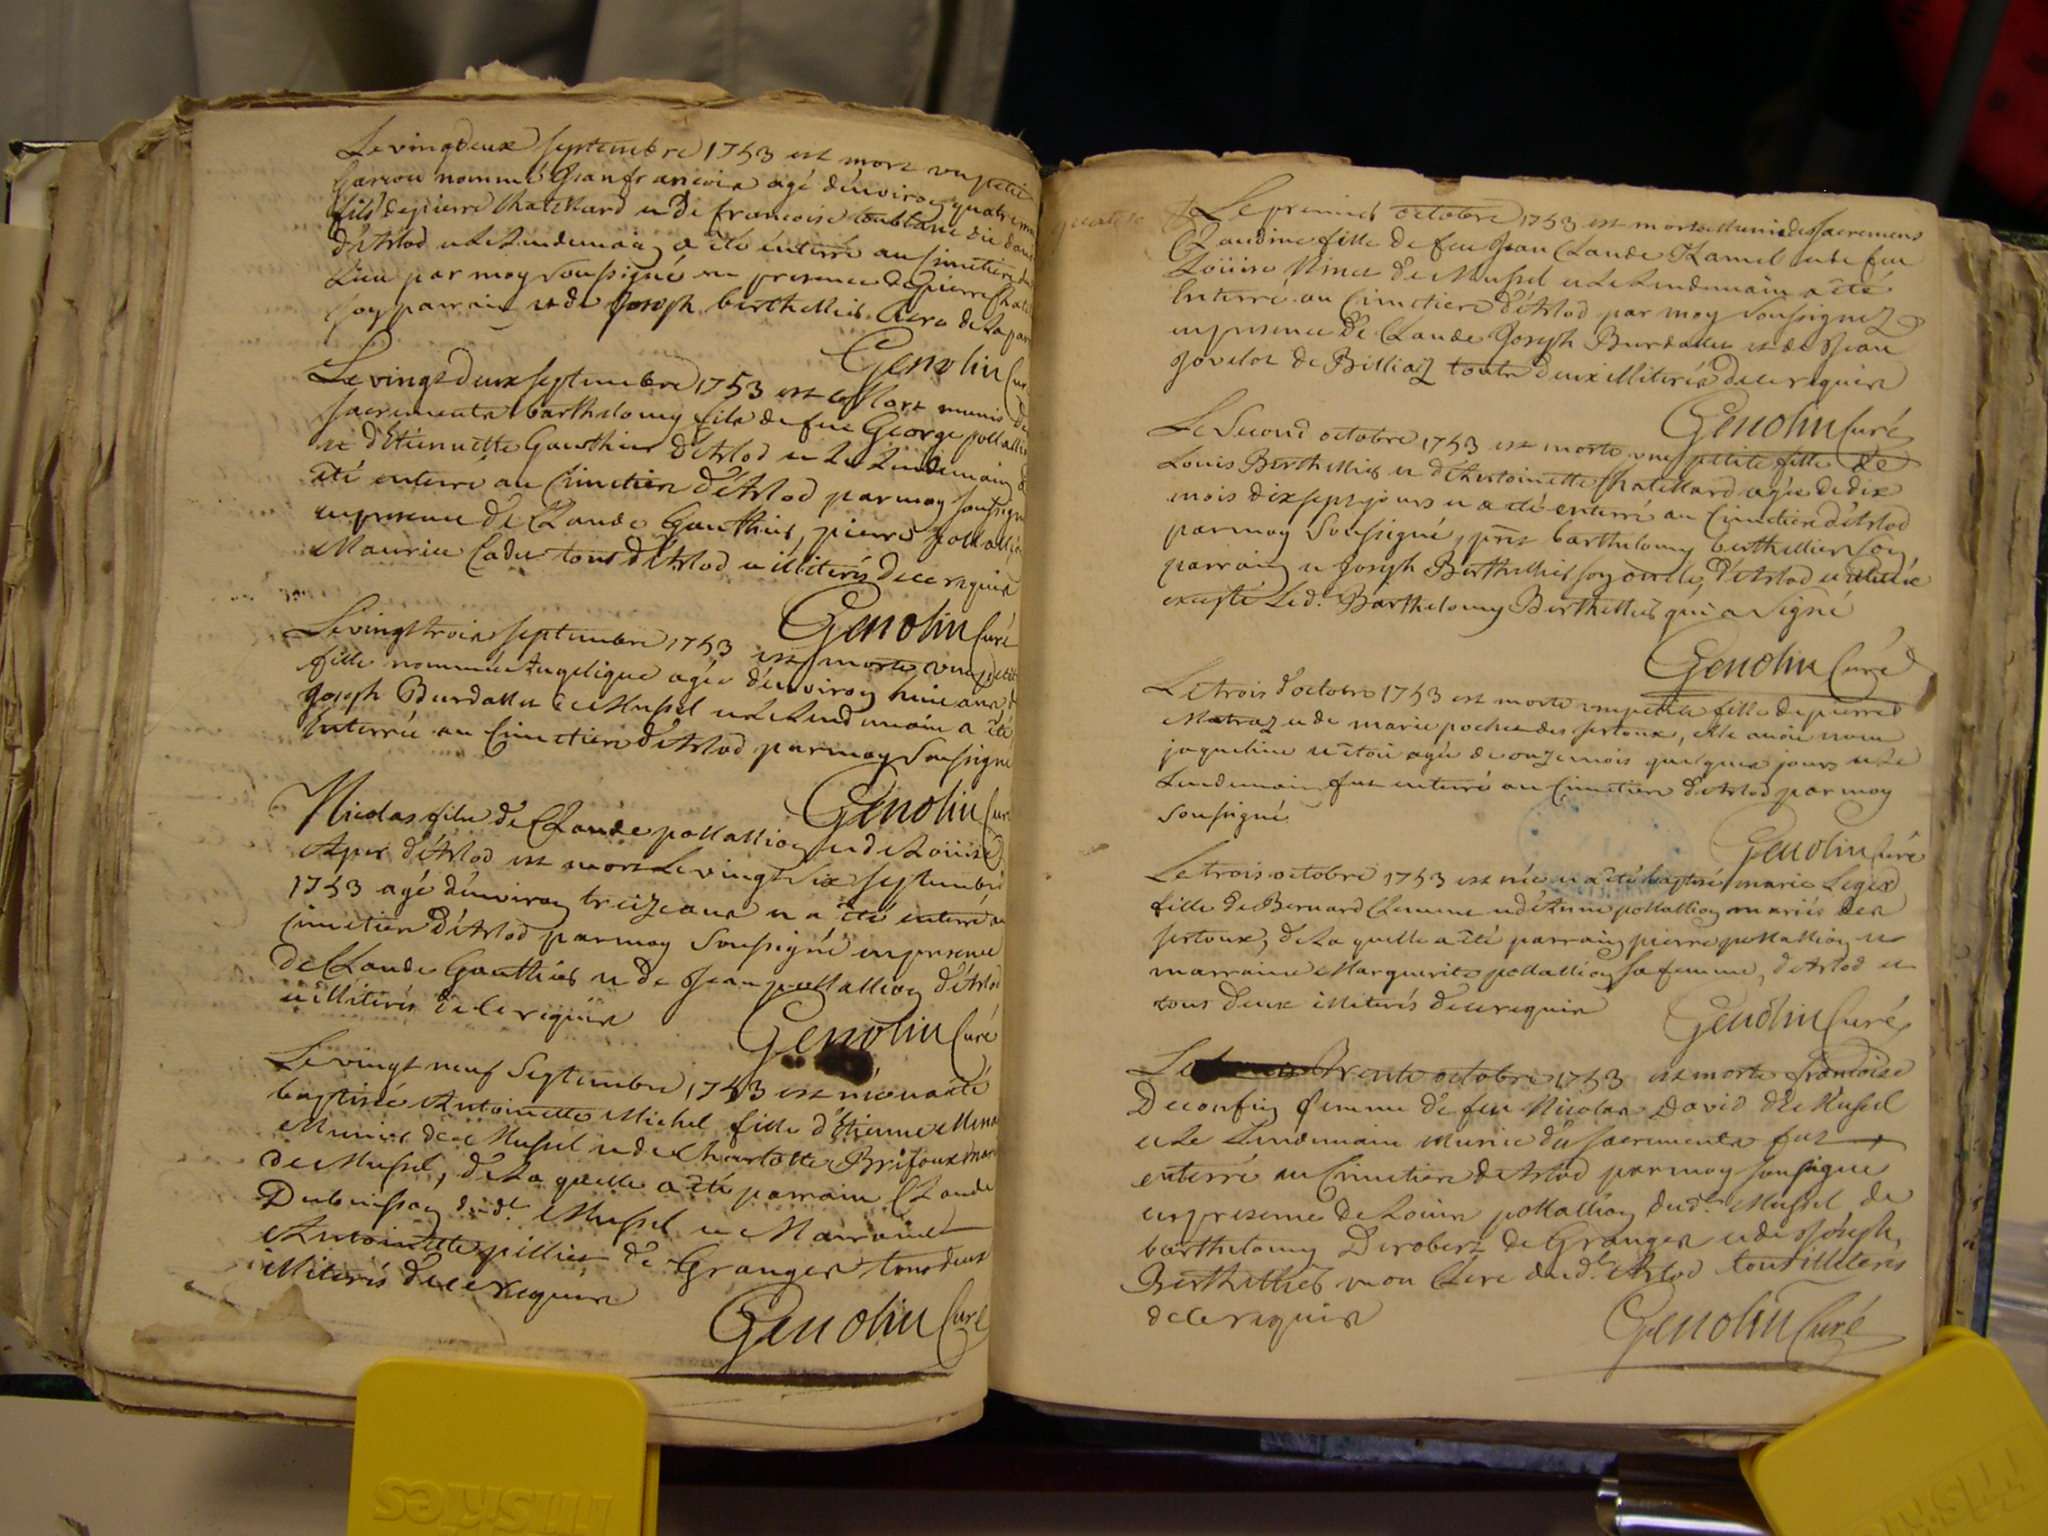 Le vingdeux septembre 1753 est mort un petit
garcon nommé Jean francois agé d'environ quatre
fils de pierre Chatellard et de francoise
d'Arlod et le lendemain a été enterré au cimetiere du
Lieu par moy soussigné en presence de pierre
son parrain et de Joseph berthellier Clerc de la
Genolin Curé
Le vingtdeux septembre 1753 est mort munis des
sacrements barthelomy fils de feu George pollallion
et d'Etiennette Gauthier d'Arlod et le lendemain
été enterré au Cimetiere d'Arlod par moy soussigné
en presence de Claude Gauthier, pierre pollallion
Maurice Cadu tous d'Arlod et illiterés de ce requis
Genolin Curé
Le vingt trois septembre 1753 est morte une petite
fille nommée Angelique agée d'environ huit ans
Joseph Burdallet de Mussel et le lendemain a été
Enterrée au Cimetiere d'Arlod par moy soussigné
Genolin Curé
Nicolas fils de Claude pollallion et de Loüise
d'Arlod est mort le vingt six septembre
1753 agé d'environ treize ans et a été enterré au
Cimetiere d'Arlod par moy soussigné en presence
de Claude Gauthier et de Jean pollallion d'Arlod
et illiterés de ce requis
Genolin Curé
Le vingt neuf Septembre 1753 est née et a été
baptisée Antoinette Michel fille d'Etienne
de Mussel et de Charlotte
de Mussel, de la quelle a été parrain Claude
Dubuisson dud.t Mussel et Marraine
Antoinette pillier de Granges tous deux
illiterés de ce requis
Genolin Curé
Le premier octobre 1753 est morte munie des sacremens
Claudine fille de feu Jean Claude Hamel et de feu
Loüise Ninet de Mussel et le lendemain a été
Enterré au Cimetiere d'Arlod par moy soussignez
en presence de Claude Joseph Burdallet et de Jean
Jovelot de Billiaz touts deux illiterés de ce requis
Genolin Curé
Le Second octobre 1753 est morte une petite fille de
Louis Berthellier et d'Antoinette Chatellard agée de dix
mois dix sept jours et a été enterré au Cimetiere d'Arlod
par moy Soussigné, prst barthelomy berthellier son
parrain et Joseph Berthellier son oncle, d'Arlod et
excepté Led.t Barthelomy Berthellier qui a signé
Genolin Curé
Le trois d'octobre 1753 est morte une petite fille de pierre
Matraz et de marie pochet des sertoux, elle avoit nom
jaqueline et étoit agée de onze mois quelques jours et le
Lendemain fut enterré au Cimetiere d'Arlod par moy
soussigné
Genolin Curé
Le trois octobre 1753 est née et a été baptisé marie Leger
fille de Bernard Clemme et d'Anne pollallion mariés des
sertoux, de la quelle a été parrain pierre pollallion et
marraine Marguerite pollallion sa femme, d'Arlod et
tous deux illiterés de ce requis
Genolin Curé
Le trente octobre 1753 est morte francoise
Deconfin femme de feu Nicolas David de Mussel
et le Lendemain munie des sacrements fut
enterré au Cimetiere d'Arlod par moy soussigné
en presence de Louis pollallion dud.t Mussel de
barthelomy Derobert de Granges et de Joseph
Berthellier mon Clerc dud.t Arlod tous illiterés
de ce requis
Genolin Curé